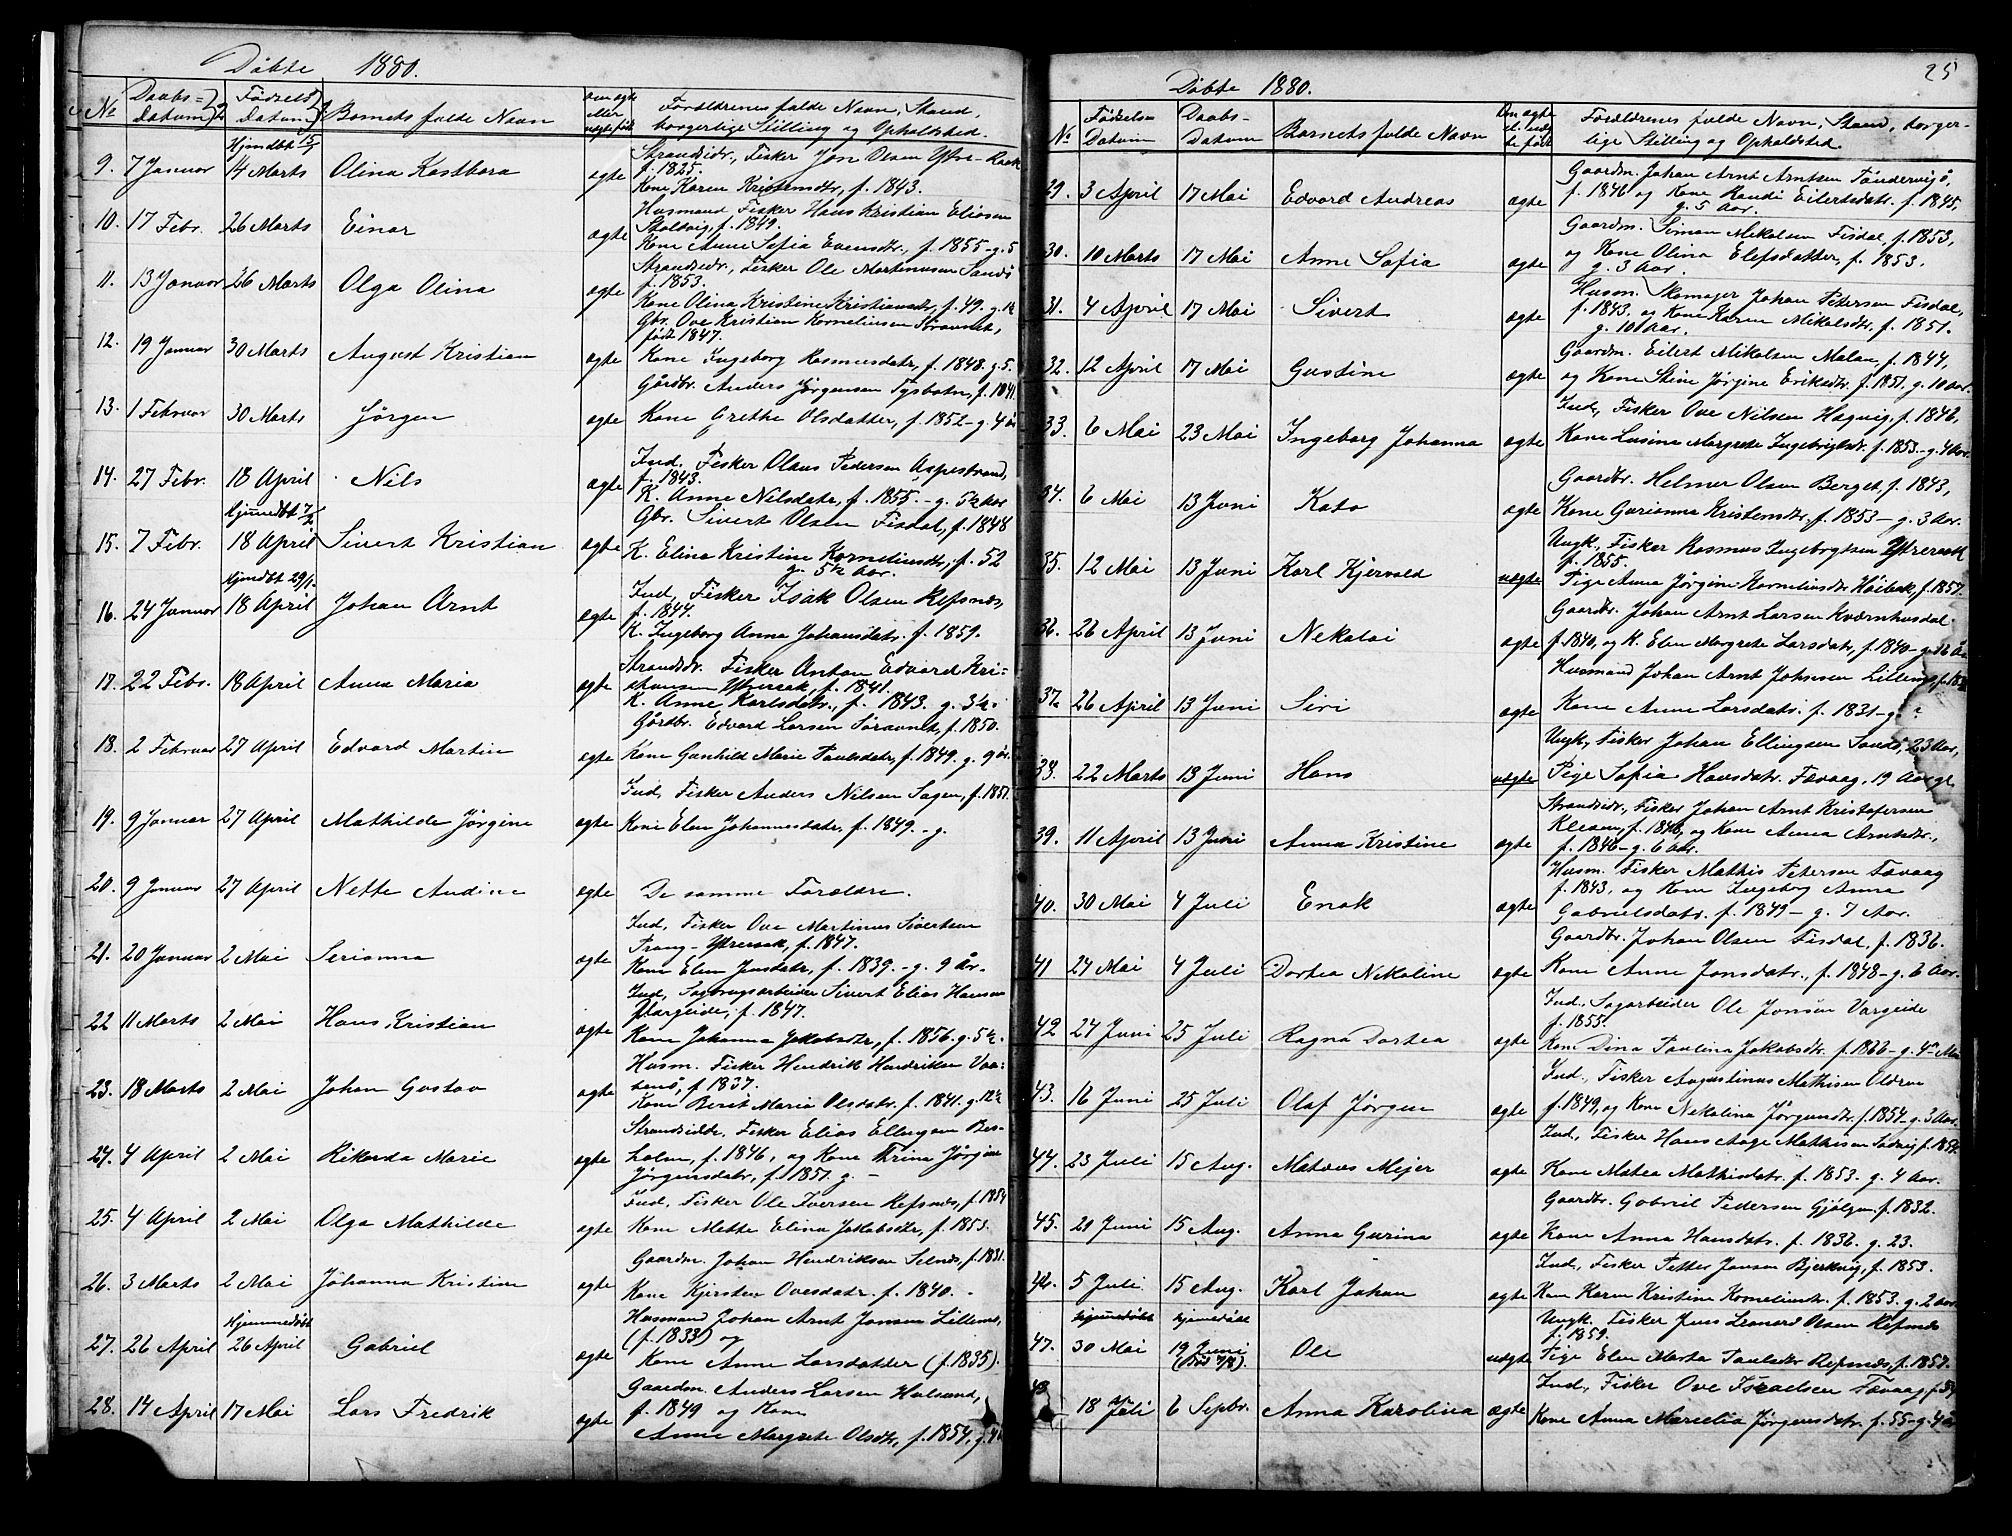 Døbte 1880.
No Daabs= Datum 2 Fødsels Datum 1 Barnets fulde Navn om ægte eller uægte født Forældrenes fulde Navn, Stand, borgerlige Stilling og Opholdsted.
Hjemdbt
9. 7 Januar 14 Marts Olina Kastbara ægte Strandsidr., Fisker Jon Olsen Yttre-
f. 1825.
Kone Karen Kristensdtr, f. 1843.
10. 17 Febr. 26 Marts Einar ægte Husmand Fisker Hans Kristian Eliasen
Stolvig, f. 1849.
Kone Anne Sofia Evensdtr., f. 1855 - g. 5
11. 13 Januar 26 Marts Olga Olina ægte Strandsidr., Fisker Ole Martinusen Sandø
f. 1853.
Kone Olina Kristine Kristiansdtr, f. 49. g. 1½
12. 19 Januar 30 Marts August Kristian ægte Gbr. Ove Kristian Korneliusen
født 1847.
Kone Ingeborg Rasmusdatr, f. 1848. g. 5.
13. 1 Februar 30 Marts Jørgen ægte Gårdbr. Anders Jørgensen Tysbotn, f. 1841
Kone Grethe Olsdatter, f. 1852 - g. 4 år
14. 27 Febr. 18 April Nils ægte Ind. Fisker Olaus Pedersen Aspestrand,
f. 1843.
K. Anne Nilsdatr, f. 1855. - g. 5½ Aar
Hjemmedbt 7/2
15. 7 Febr. 18 April Sivert Kristian ægte Gbr. Sivert Olsen Fisdal, f. 1848
K. Elina Kristine Korneliusdtr, f. 52
g. 5½ Aar.
Hjemdbt 29/1
16. 24 Januar 18 April Johan Arnt ægte Ind, Fisker Isak Olsen Refsnes,
f. 1844.
K. Ingeborg Anna Johansdatr. f. 1859.
17. 22 Febr. 18 April Anna Maria ægte Strandsidr. Fisker Anton Edvard Kri-
stiansen Yttresak, f. 1841.
K. Anne Karlsdatr., f. 1843. g. 3½.
18. 2 Februar 27 April Edvard Martin ægte Gårdbr. Edvard Larsen Søravnet, f. 1850.
Kone Gunhild Marie Paulsdatr, f. 1849. g. 9 år.
19. 9 Januar 27 April Mathilde Jørgine ægte Ind, Fisker Anders Nilsen Sagen, f. 1851.
Kone Elen Johannesdatr, f. 1849. - g.
20. 9 Januar 27 April Nette Andine ægte De samme Forældre.
21. 20 Januar 2 Mai Serianna ægte Ind, Fisker Ove Martinus Sivertsen
Trang - Yttresak, f. 1847.
Kone Elen Jensdatr, f. 1839. - g. 9 År.
22 11 Marts 2 Mai Hans Kristian ægte Ind, Sagbrugsarbeider Sivert Elias Hansen
Vargeide, f. 1847.
Kone Johanna Jakobsdtr, f. 1856. g. 5½.
23. 18 Marts 2 Mai Johan Gustav ægte Husm. Fisker Hendrik Hendriksen
f. 1837.
Kone Berit Maria Olsdatr. f. 1841. g. 12½
24. 4 April 2 Mai Rikarda Marie ægte Strandsidde, Fisker Elias Ellingsen Ber-
holm, f. 1846, og Kone Trina Jørgine
Jørgensdatr, f. 1857. g. -
25. 4 April 2 Mai Olga Mathilde ægte Ind, Fisker Ole Iversen Refsnes, f. 1854
Kone Mette Elina Jakobsdtr, f. 1853.
26. 3 Marts 2 Mai Johanna Kristine ægte Gaardm. Johan Hendriksen Selnes, f. 1831.
Kone Kjersten Ovesdatr. f. 1840. -
Hjemmedøbt
27. 26 April 26 April Gabriel ægte Husmand Johan Arnt Jonsen Lillenes
(f. 1833) og
Kone Anne Larsdatter (f. 1835).
28. 14 April 17 Mai Lars Fredrik ægte Gaardm. Anders Larsen Hulsund,
f. 1849 og Kone
Anne Margrete Olsdtr, f. 1854,
25
Døbte 1880.
No Fødselsn Datum Daabs- Datum Barnets fulde Navn Om ægte el. uæg- te født Forældrenes fulde Navn, Stand, borger-
lige Stilling og Opholdsted.
29. 3 April 17 Mai Edvard Andreas ægte Gaardm. Johan Arnt Arntsen Tøndervigø,
f. 1846 og Kone Randi Eilertsdatr. f. 1845,
g. 5 Aar.
30. 10 Marts 17 Mai Anne Sofia ægte Gaardm. Simon Mikalsen Fisdal, f. 1853,
og Kone Olina Elefsdatter, f. 1853.
g. 3 Aar.
31. 4 April 17 Mai Sivert ægte Husm. Skomager Johan Petersen Fisdal,
f. 1843, og Kone Karen Mikalsdtr. f. 1851.
g. 10 Aar.
32. 12 April 17 Mai Gustine ægte Gaardm. Eilert Mikalsen Malan, f. 1844,
og Kone Stine Jørgine Eriksdtr. f. 1851. g. 10 Aar.
33. 6 Mai 23 Mai Ingeborg Johanna ægte Ind, Fisker Ove Nilsen Hagvig, f. 1846,
Kone Lusine Margrete Ingebrigtsdr. f. 1853 - g. 4 Aar.
34. 6 Mai 13 Juni Kato ægte Gaardbr. Helmer Olsen Berget, f. 1843,
Kone Gurianna Kristensdtr, f. 1853 - g. 3 Aar.
35. 12 Mai 13 Juni Karl Kjervald uægte Ungk., Fisker Rasmus Ingebrigtsen Yttresak
f. 1855.
Pige Anna Jørgine Korneliusdtr Høibak, f. 1857.
36. 26 April 13 Juni Nekolai ægte Gaardbr. Johan Arnt Larsen Kværnhusdal
f. 1840, og K. Elen Margrete Larsdatr, f. 1840 - g. 16 Aar
37. 26 April 13 Juni Siri ægte Husmand Johan Arnt Johnsen Lillenes,
Kone Anne Larsdatr. f. 1831 - g.
38. 22 Marts 13 Juni Hans uægte Ungk, Fisker Johan Ellingsen Sandø, 23 Aar,
Pige Sofia Hansdatr. Fævaag, 19 Aar gl
39. 11 April 13 Juni Anna Kristine ægte Strandsidr, Fisker Johan Arnt Kristofersen
f. 1848, og Kone Anna Arntsdtr.,
f. 1846 - g. 6 Aar.
40. 30 Mai 4 Juli Enok ægte Husm. Fisker Mathis Petersen Fævaag
f. 1843, og Kone Ingeborg Anna
Gabrielsdatr. f. 1849 - g. 7 Aar.
41 24 Mai 4 Juli Dortea Nikoline ægte Gaardbr. Johan Olsen Fisdal, f. 1836.
Kone Anne Jonsdatr., f. 1848 - g. 6 Aar.
42 24 Juni 25 Juli Ragna Dortea ægte Ind, Sagarbeider Ole Jonsen Vargeide
f. 1855.
Kone Dina Paulina Jakobsdtr. f. 1866 - g.
43. 16 Juni 25 Juli Olaf Jørgen ægte Ind, Fisker Augustinus Mathisen
f. 1849, og Kone Nekolina Jørgensdtr, f. 1854 - g. 3 Aar.
44. 23 Juli 15 Aug. Mateus Mejer ægte Ind, Fisker Hans Aage Mathisen
Kone Matea Mathisdatr. f. 1853. g. 4 Aar.
45. 20 Juni 15 Aug. Anna Gurina ægte Gaardbr. Gabriel Pedersen Gjølgen f. 1832.
Kone Anna Hansdatr. f. 1836. g. 23.
46. 5 Juli 15 Aug. Karl Johan ægte Ind, Fisker Petter Jonsen Bjerkvig, f. 1853.
Kone Karen Kristine Korneliusdtr. f. 1853. g. 2 Aar
hjemmedøbt hjemmedøbt
47. 30 Mai 19 Juni Ole uægte Ungk. Fisker Jens Leonard Olsen Refsnes
f. 1859.
Pige Elen Marta Paulsdtr Refsnes, f. 1857.
48 18 Juli 6 Sepbr. Anna Karolina ægte Ind, Fisker Ove Israelsen Fævaag
Kone Anna Marselia Jørgensdatr. f. 55 - g. 4